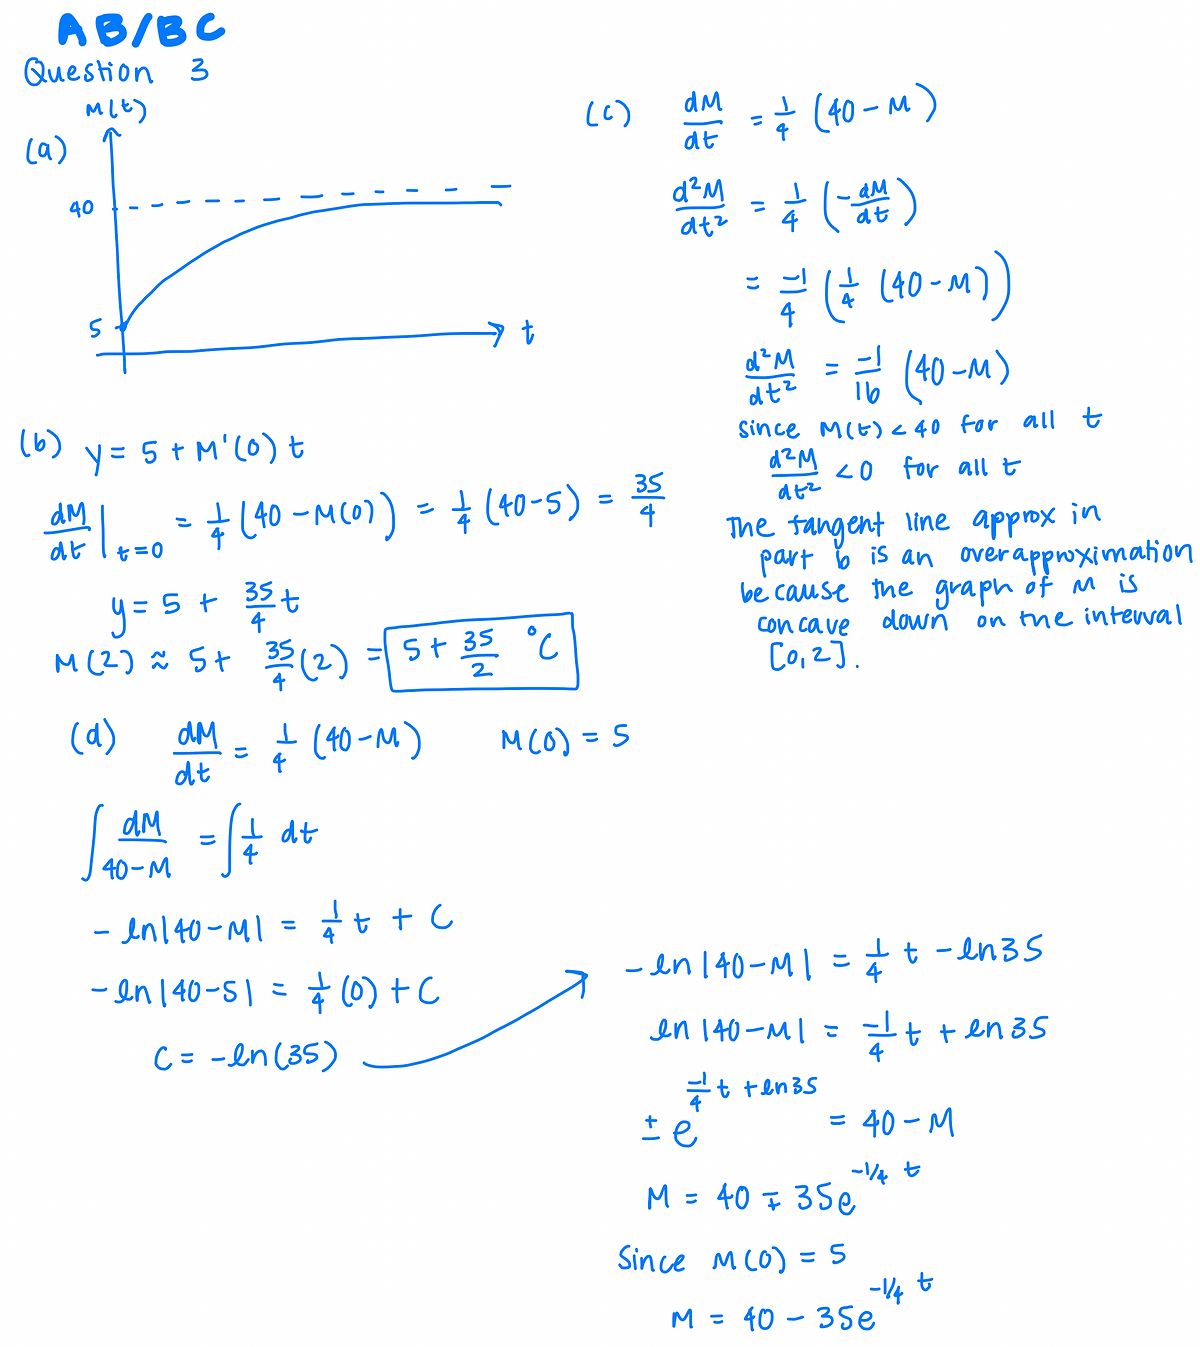 AB/BC
Question 3
M(t)
(a)
40
5
t
(b) y = 5 + M'(0) t
dM/dt |t=0 = 1/4 (40 - M(0)) = 1/4 (40-5) = 35/4
y = 5 + 35/4 t
M(2) ≈ 5 + 35/4 (2) = 5 + 35/2 °C
(c) dM/dt = 1/4 (40 - M)
d²M/dt² = 1/4 (-dM/dt)
= -1/4 (1/4 (40 - M))
d²M/dt² = -1/16 (40 - M)
since M(t) < 40 for all t
d²M/dt² < 0 for all t
The tangent line approx in
part b is an overapproximation
because the graph of M is
concave down on the interval
[0,2].
(d) dM/dt = 1/4 (40 - M) M(0) = 5
∫ dM/40-M = ∫ 1/4 dt
- ln|40-M| = 1/4 t + C
- ln|40-5| = 1/4 (0) + C
C = -ln(35)
- ln|40-M| = 1/4 t - ln35
ln|40-M| = -1/4 t + ln35
± e^(-1/4 t + ln35) = 40 - M
M = 40 ∓ 35e^(-1/4 t)
Since M(0) = 5
M = 40 - 35e^(-1/4 t)